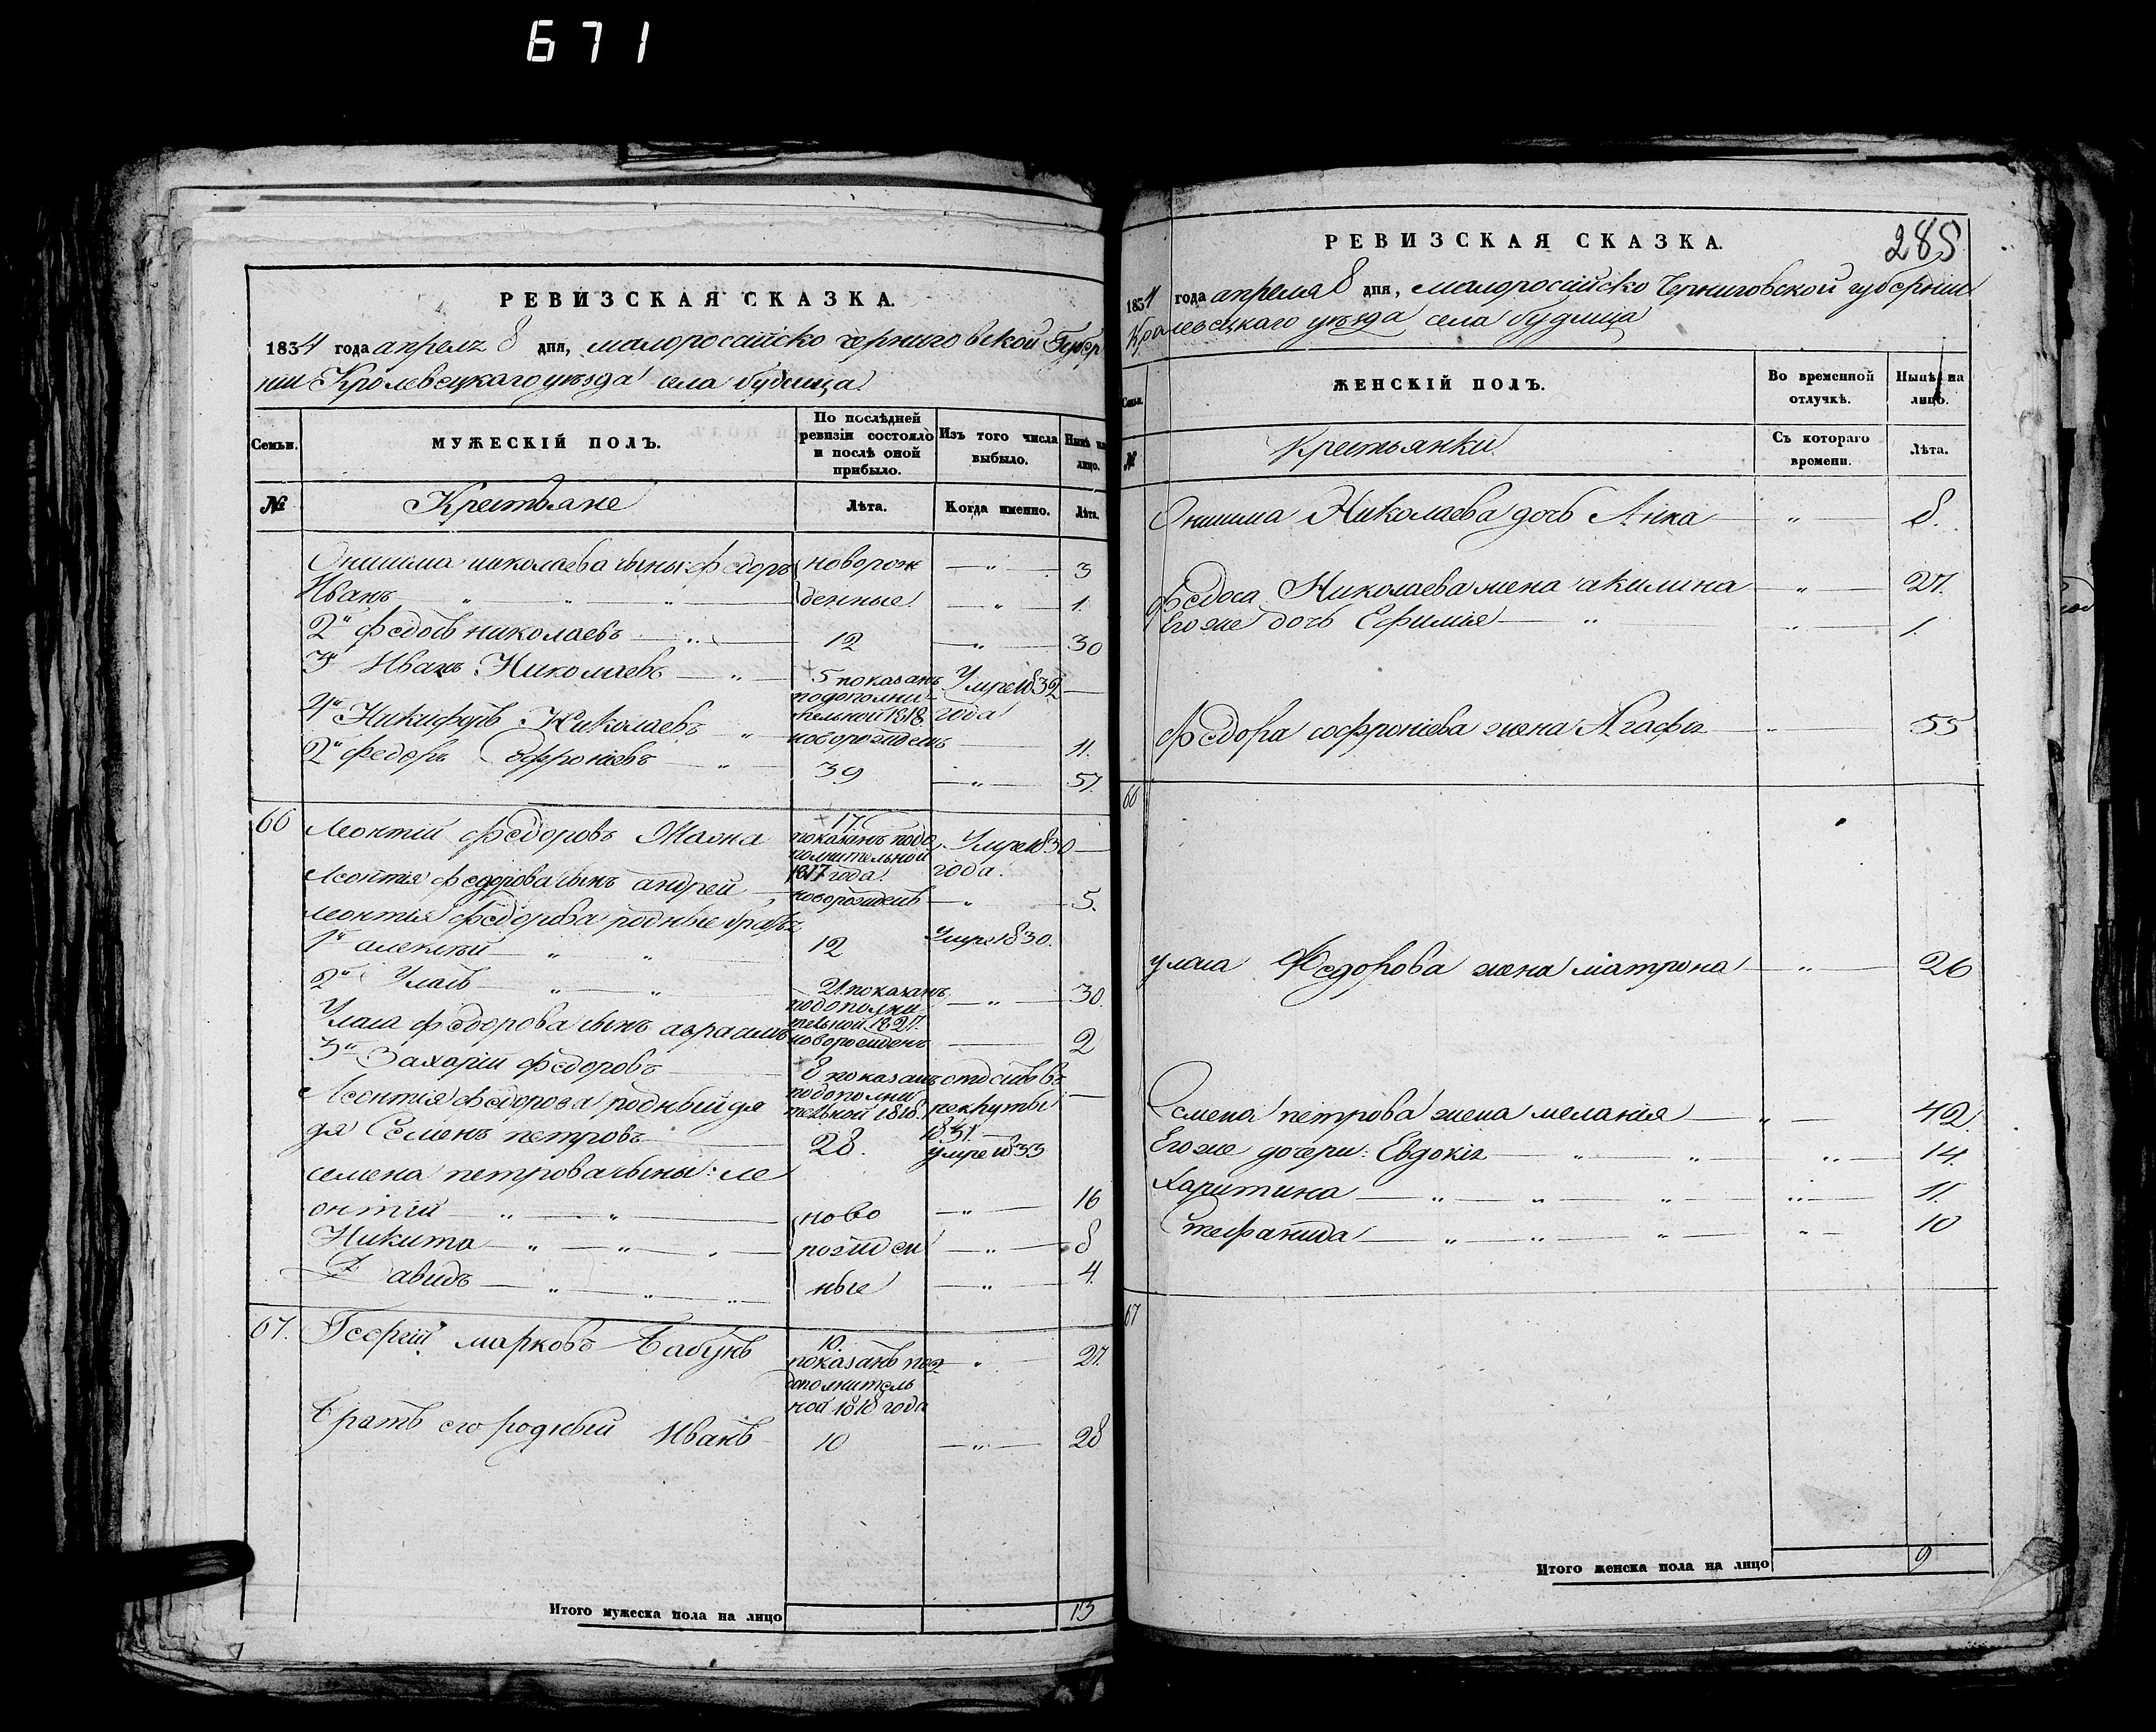 671
РЕВИЗСКАЯ СКАЗКА.
1834 года апреля 8 дня, малоросайско черниговской Губер
нии Кролевецкаго уезда села будища
Семьи.
МУЖЕСКІЙ ПОЛЪ.
По послѣдней ревизіи состояло и послѣ оной прибыло.
Изъ того числа выбыло.
Нынѣ на лицо.
№
Крестьяне
Лѣта.
Когда именно.
Лѣта.
Онисима николаева сыны: федоръ новорож 3
Иванъ денные 1.
2й федосъ николаевъ 12 30
3й Иванъ Николаевъ 5 показанъ подополнительной 1818 Умре 1832 года
4й Никифоръ Николаевъ новорожденъ 11.
2й федоръ Софроніевъ 39 57.
66 Леонтій федоровъ 17 показанъ подополнительной 1817 года. Умре 1830 года.
Леонтия федорова сынъ андрей новорожденъ 5.
леонтия федорова родные братъя
1й алексѣй 12 Умре 1830.
2й Уласъ 21. показанъ подополнительной 1827. 30.
Уласа федорова сынъ аврамъ новорожденъ 2
3й Захарій федоровъ 8 показанъ подополнительной 1818. отдан въ рекруты 1831.
Леонтия федорова родный дя
дя Семенъ петровъ 28. умре 1833
семена петрова сыны: ле
онтій ново 16
Никита рожден 8
Давидъ ные 4.
67. Георгій марковъ Бабукъ 10. показанъ под дополнительной 1818 года 27.
Братъ его родный Иванъ 10 28
Итого мужеска пола на лицо 13
РЕВИЗСКАЯ СКАЗКА.
285
1834 года апреля 8 дня, малоросайско Черниговской губернии
Кролевецкаго уезда села будища
Семьи.
ЖЕНСКІЙ ПОЛЪ.
Во временной отлучкѣ.
Нынѣ на лицо.
№
Крестьянки
Съ котораго времени.
Лѣта.
Онисима Николаева дочь Анна 8.
федоса Николаева жена акилина 27.
Его же дочь Ефимія 1.
Федора софроніева жена Агафія 55
66
уласа Федорова жена матрона 26
Семена петрова жена меланія 42
Его же дочери: Евдокія 14.
Харитина 11.
Стефанида 10
67
Итого женска пола на лицо 9